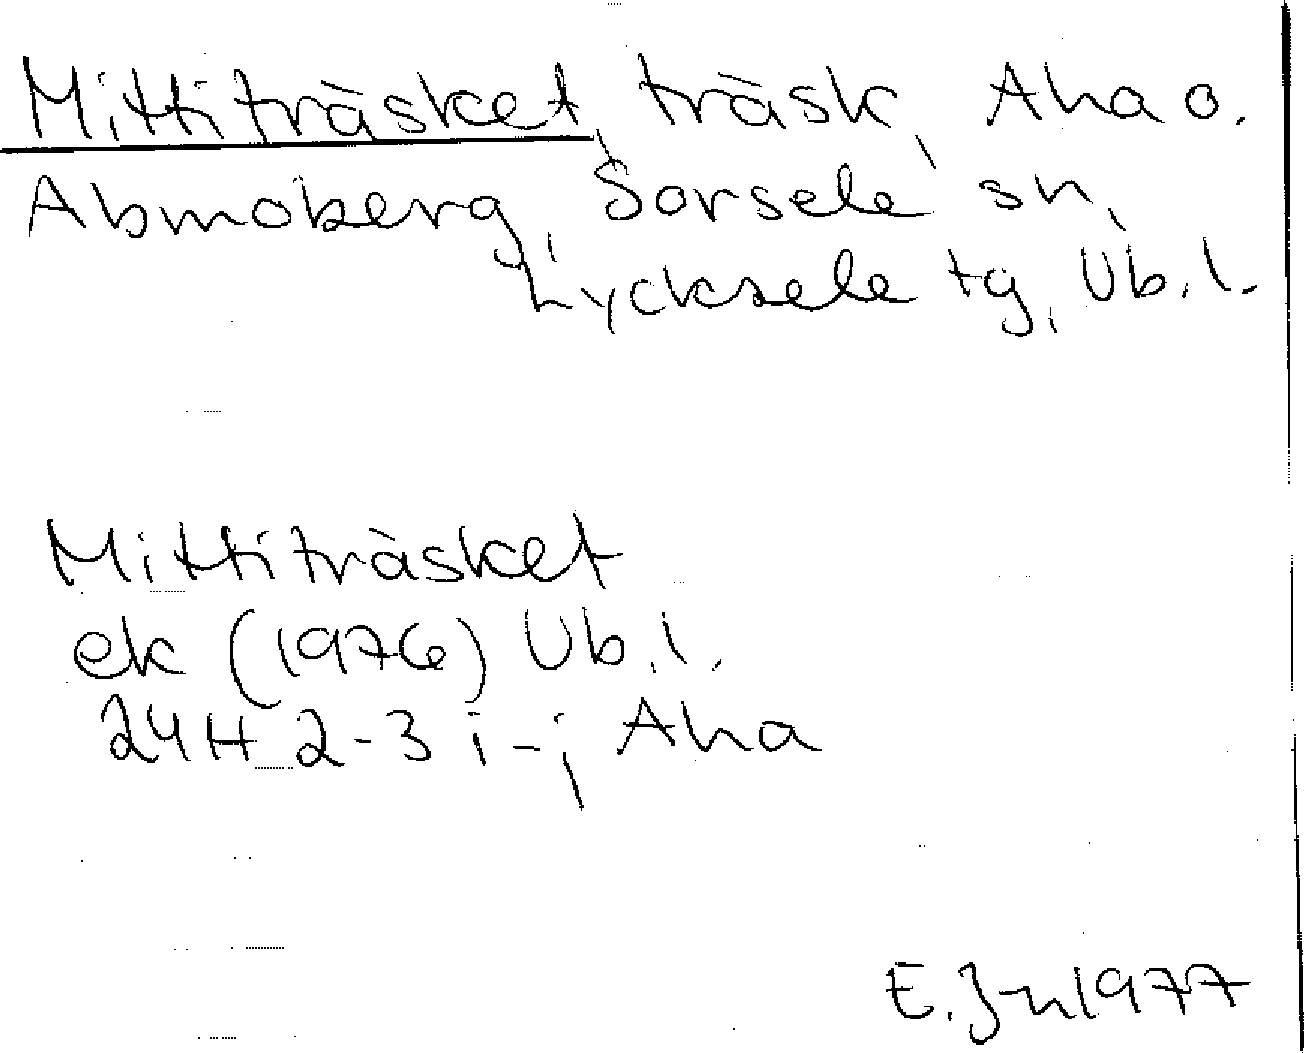 Mittiträsket, träsk, Aha o.
Abmoberg, Sorsele sn,
Lycksele tg, Vb. l.
Mittiträsket
ek (1976) Vb. l.
24H 2-3 i-j Aha
E. Jn 1977